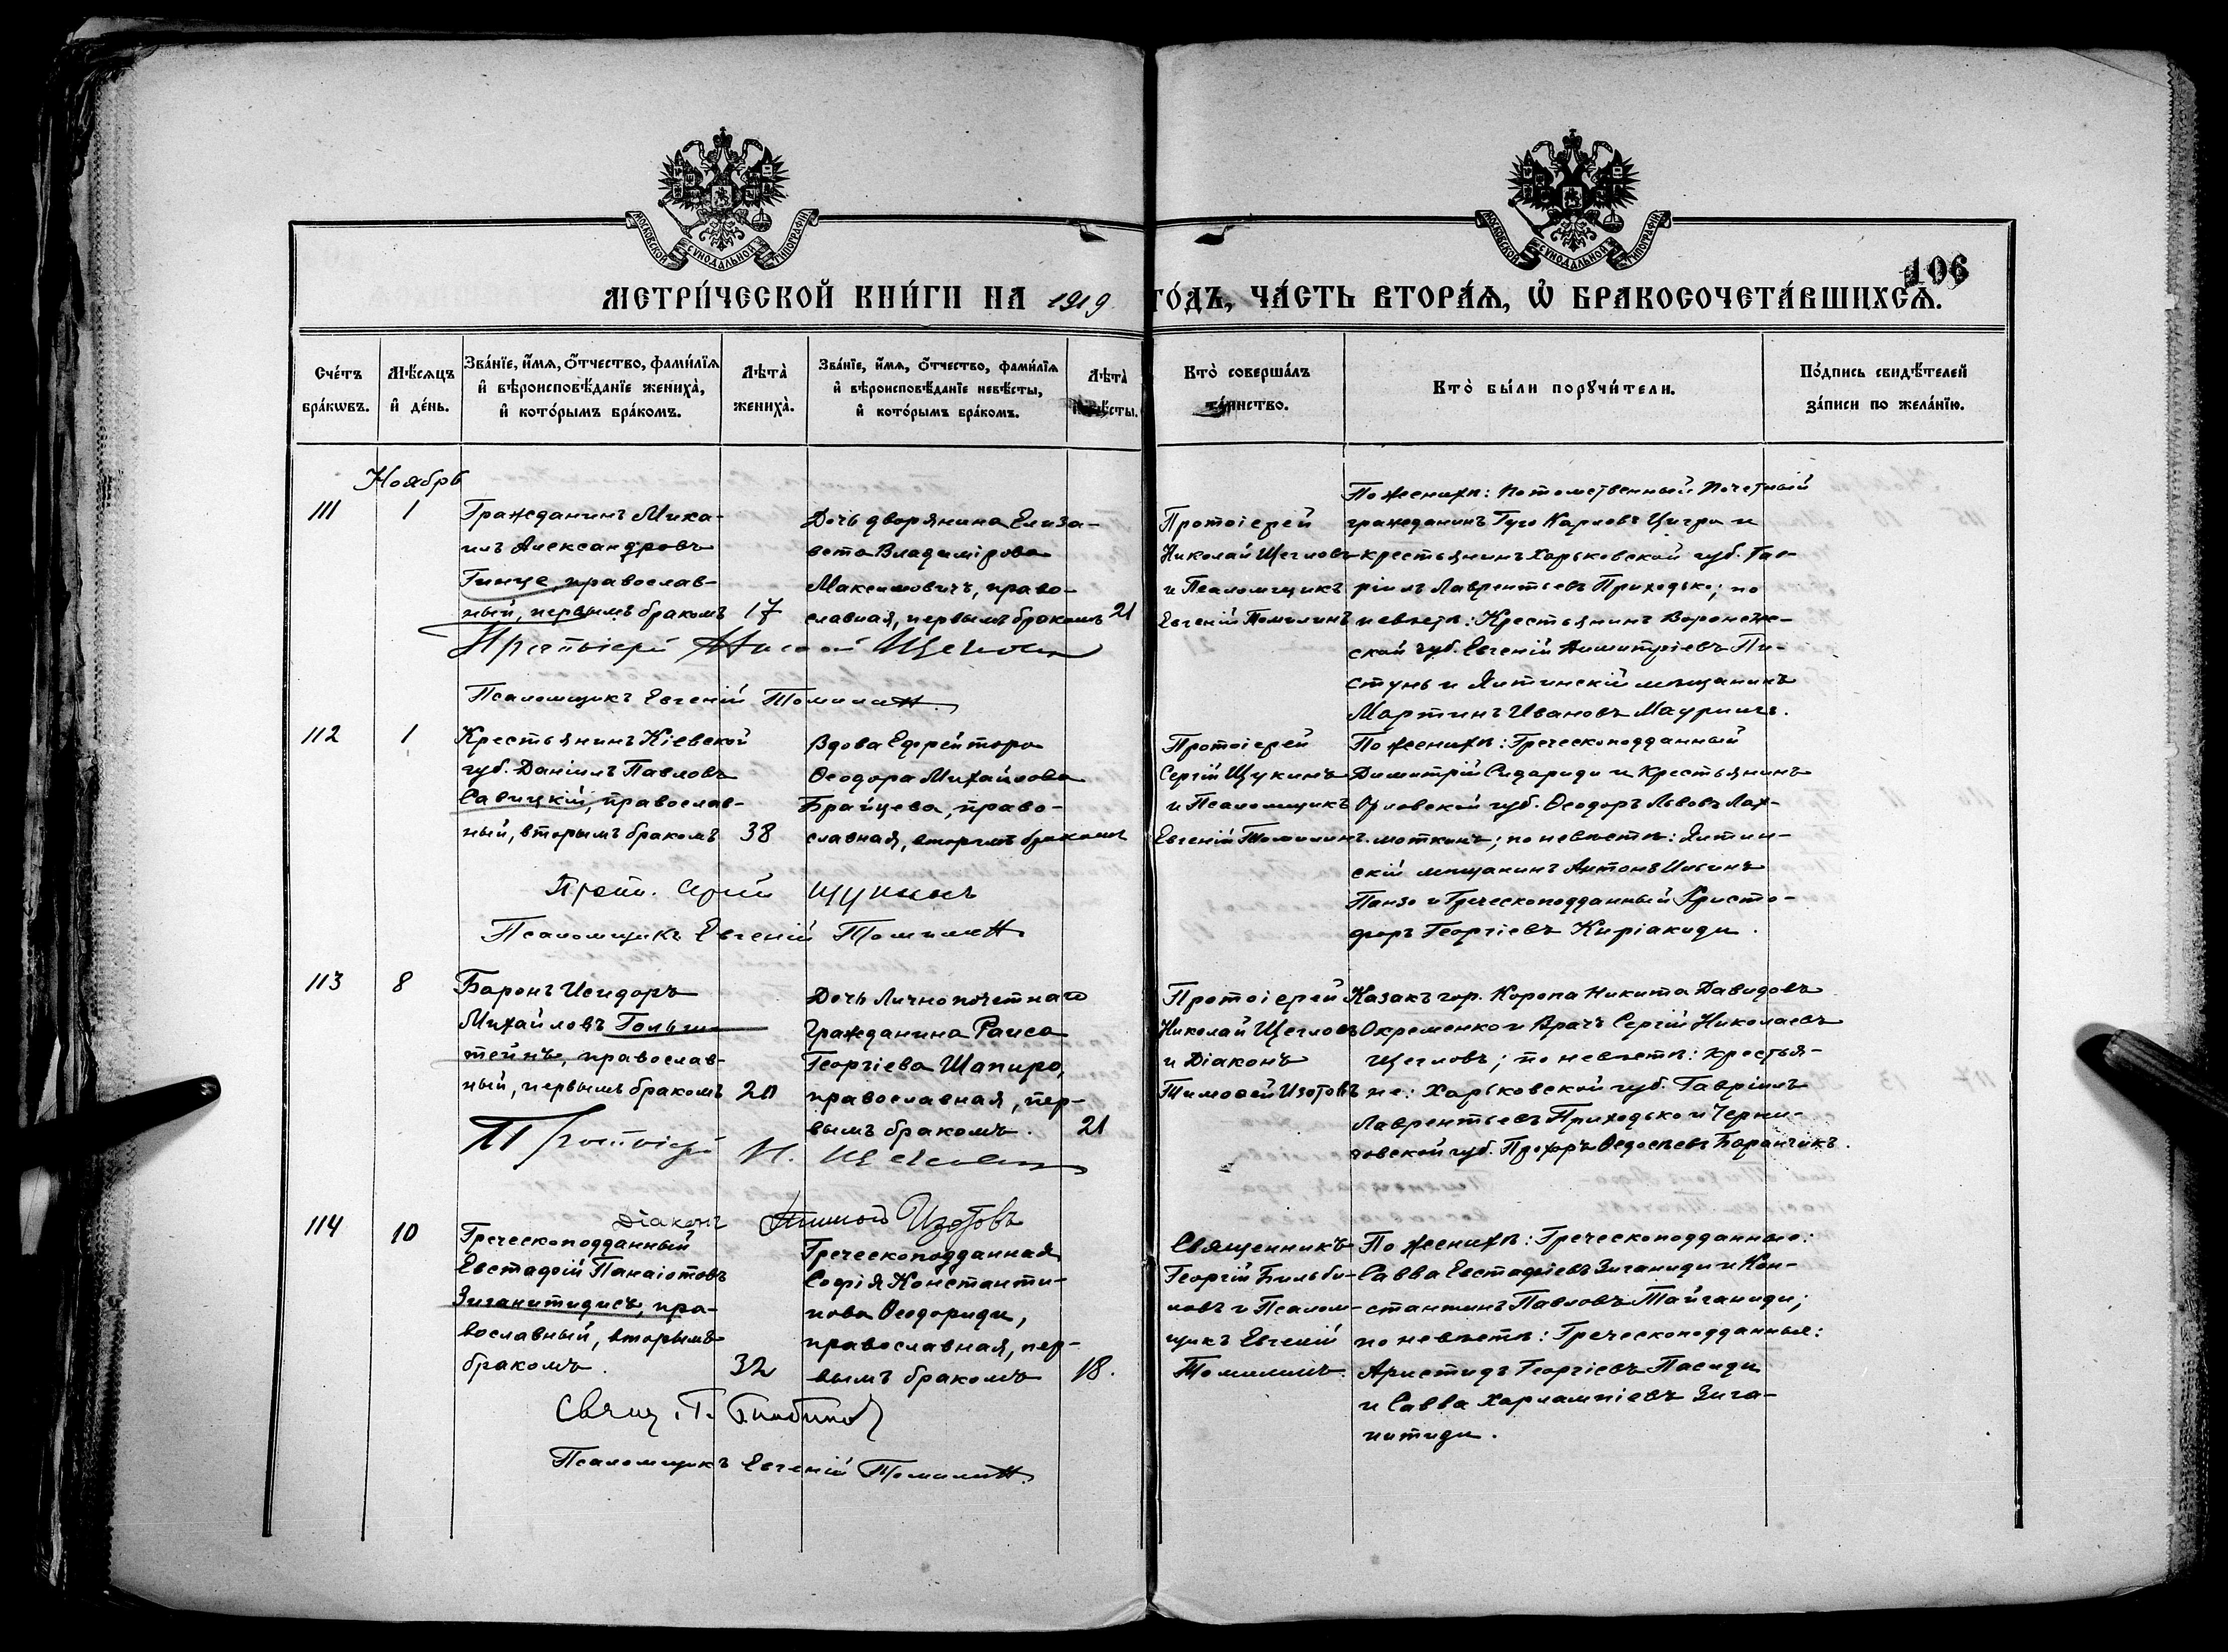 МОСКОВСКОЙ СУНОДАЛЬНОЙ ТИПОГРАФІИ
МОСКОВСКОЙ СУНОДАЛЬНОЙ ТИПОГРАФІИ
106
МЕТРИ́ЧЕСКОЙ КНИ́ГИ НА 1919 ГО́ДЪ, ЧА́СТЬ ВТОРА́Ѧ, Ѡ҆ БРАКОСОЧЕТА́ВШИХСѦ.
Сче́тъ бра́кѡвъ.
Мѣ́сяцъ и҆ де́нь.
Зва́нїе, и҆́мѧ, ѻ҆́тчество, фами́лїѧ и҆ вѣроисповѣ́данїе жениха̀, и҆ кото́рымъ бра́комъ.
Лѣта̀ жениха̀.
Зва́нїе, и҆́мѧ, ѻ҆́тчество, фами́лїѧ и҆ вѣроисповѣ́данїе невѣ́сты, и҆ кото́рымъ бра́комъ.
Лѣта̀ невѣ́сты.
Кто̀ соверша́лъ та́инство.
Кто̀ бы́ли порꙋчи́тели.
По́дпись свидѣ́телей за́писи по жела́нїю.
Ноябрь
111
1
Гражданинъ Миха-
илъ Александровъ
Гинце, православ-
ный, первымъ бракомъ
17
Дочь дворянина Елиза-
вета Владимірова
Максимовичъ, право-
славная, первымъ бракомъ
21
Протоіерей
Николай Щегловъ
и Псаломщикъ
Евгеній Томилинъ
По женихѣ: потомственный почетный
гражданинъ Гуго Карловъ Цигра и
крестьянинъ Харьковской губ. Гав-
ріилъ Лаврентьевъ Приходько; по
невѣстѣ: Крестьянинъ Воронеж-
ской губ. Евгеній Димитріевъ Пи-
стунь и Ялтинскій мѣщанинъ
Мартинъ Ивановъ Мауринъ.
Протоіерей Николай Щегловъ
Псаломщикъ Евгеній Томилинъ
112
1
Крестьянинъ Кіевской
губ. Даніилъ Павловъ
Савицкій, православ-
ный, вторымъ бракомъ
38
Вдова Ефрейтора
Ѳеодора Михайлова
Брайцева, право-
славная, вторымъ бракомъ
Протоіерей
Сергій Щукинъ
и Псаломщикъ
Евгеній Томилинъ.
По женихѣ: Греческоподданный
Димитрій Сидариди и Крестьянинъ
Орловской губ. Ѳеодоръ Львовъ Лах-
моткинъ; по невѣстѣ: Ялтин-
скій мѣщанинъ Антонъ Ильинъ
Панзо и Греческоподданный Христо-
форъ Георгіевъ Киріакиди.
Прот. Сергій Щукинъ
Псаломщикъ Евгеній Томилинъ
113
8
Баронъ Исидоръ
Михайловъ Гольш-
тейнъ, православ-
ный, первымъ бракомъ
20
Дочь Лично почетнаго
гражданина Раиса
Георгіева Шапиро,
православная, пер-
вымъ бракомъ.
21
Протоіерей
Николай Щегловъ
и Діаконъ
Тимоѳей Изотовъ
Казакъ гор. Коропа Никита Давидовъ
Окременко и Врачъ Сергій Николаевъ
Щегловъ; по невѣстѣ: крестья-
не: Харьковской губ. Гавріилъ
Лаврентьевъ Приходько и Черни-
говской губ. Прохоръ Ѳедосѣевъ Баранчикъ.
Протоіерей Н. Щегловъ
Діаконъ Тимоѳей Изотовъ
114
10
Греческоподданный
Евстафій Панаіотовъ
Зиганитидисъ, пра-
вославный, вторымъ
бракомъ.
32
Греческоподданная
Софія Константи-
нова Ѳеодориди,
православная, пер-
вымъ бракомъ
18.
Священникъ
Георгій Бильби-
новъ и Псалом-
щикъ Евгеній
Томилинъ.
По женихѣ: Греческоподданные:
Савва Евстафіевъ Зиганиди и Кон-
стантинъ Павловъ Тайганиди;
по невѣстѣ: Греческоподданные:
Аристидъ Георгіевъ Пасиди
и Савва Харлампіевъ Зига-
нитиди.
Свящ. Г. Бильбиновъ
Псаломщикъ Евгеній Томилинъ.